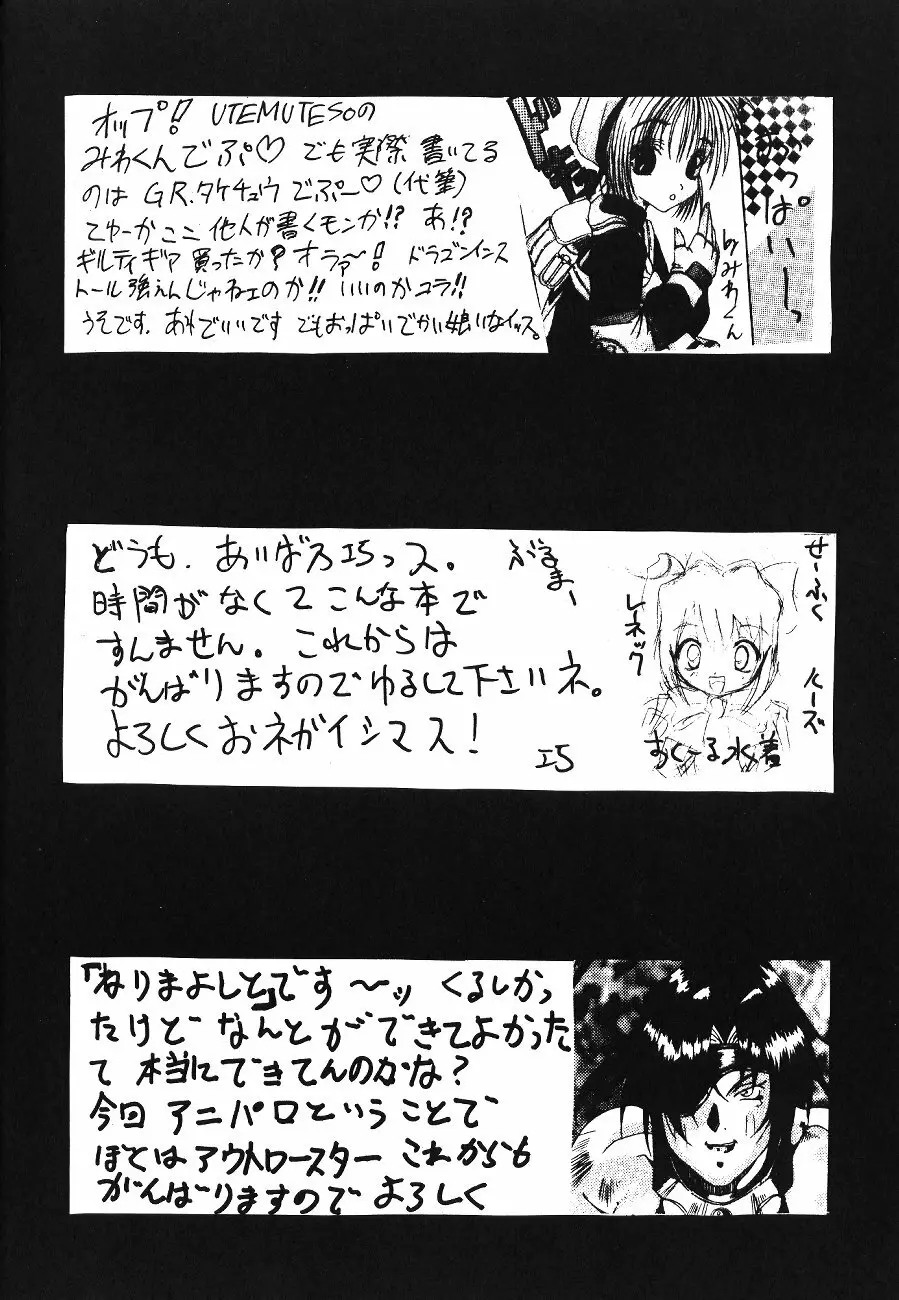 オップ! UTEMUTESOの
みわくんでぷ♡ でも実際 書いてる
のは G.R.タケチュウ でぷー♡(代筆)
てゆーか ここ 他人が書くモンか!? あ!?
ギルティギア 買ったか? オラァ〜! ドラゴンインス
トール強えんじゃねェのか!! いいのかコラ!!
うそです. あれでいいです でもおっぱいでかい娘いなイッス。
おっぱい〜っ
byみわくん
どうも. あいばス巧っス。
時間がなくてこんな本で
すんません。 これからは
がんばりますのでゆるして下さいネ。
よろしくおネガイシマス!
巧
ぶるまー
せーふく
レーネック
ルーズ
すくーる水着
「ねりまよしと」です〜ッ くるしかっ
たけど なんとができてよかった
て 本当にできてんのかな?
今回 アニパロということで
ぼくはアウトロースター これからも
がんばりますので よろしく